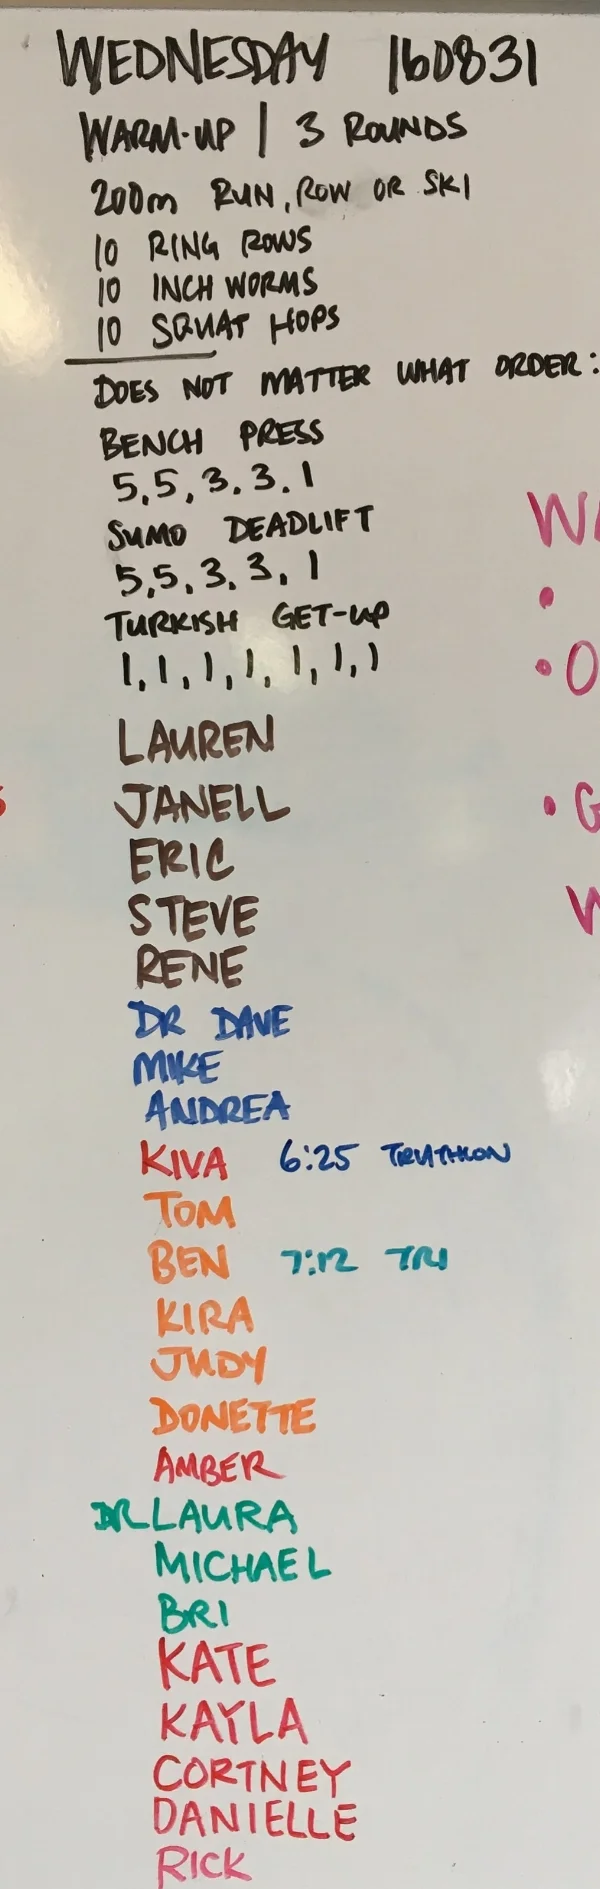 WEDNESDAY 160831
WARM-UP | 3 ROUNDS
200m RUN, ROW OR SKI
10 RING ROWS
10 INCH WORMS
10 SQUAT HOPS
DOES NOT MATTER WHAT ORDER:
BENCH PRESS
5, 5, 3, 3, 1
SUMO DEADLIFT
5, 5, 3, 3, 1
TURKISH GET-UP
1, 1, 1, 1, 1, 1, 1
LAUREN
JANELL
ERIC
STEVE
RENE
DR DAVE
MIKE
ANDREA
KIVA 6:25 TRIATHLON
TOM
BEN 7:12 TRI
KIRA
JUDY
DONETTE
AMBER
DR LAURA
MICHAEL
BRI
KATE
KAYLA
CORTNEY
DANIELLE
RICK